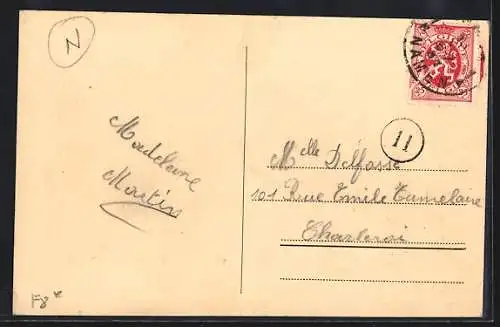 N
NAMEN
11
Madeleine
Martin
Mlle Delfosse
101 Rue Emile Tumelaire
Charleroi
F8*